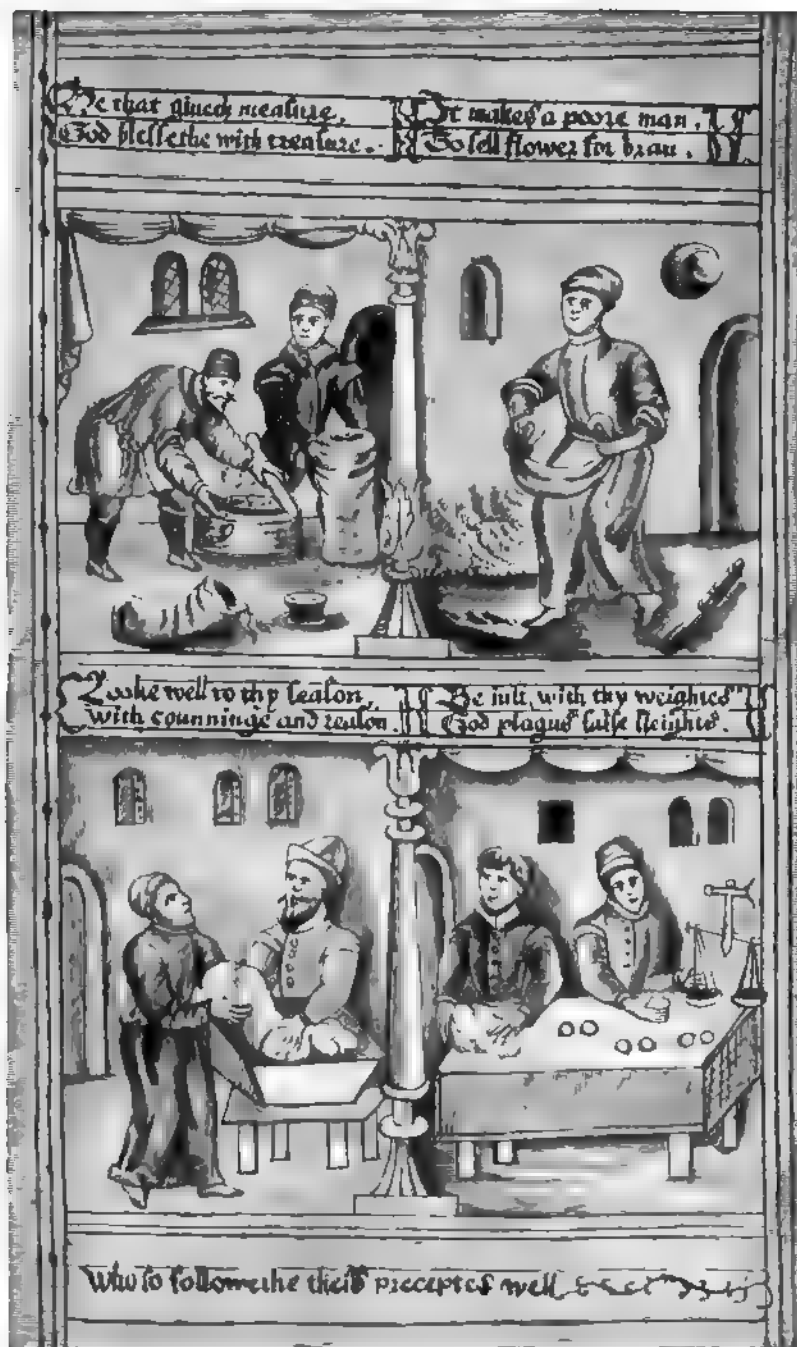 He that giueth measure,
God blessethe with treasure.
It makes a poore man,
To sell flower for bran.
Looke well to thy season,
with counninge and reason.
Be iust, with thy weightes
God plagus false sleightes.
Who so followethe theis preceptes well